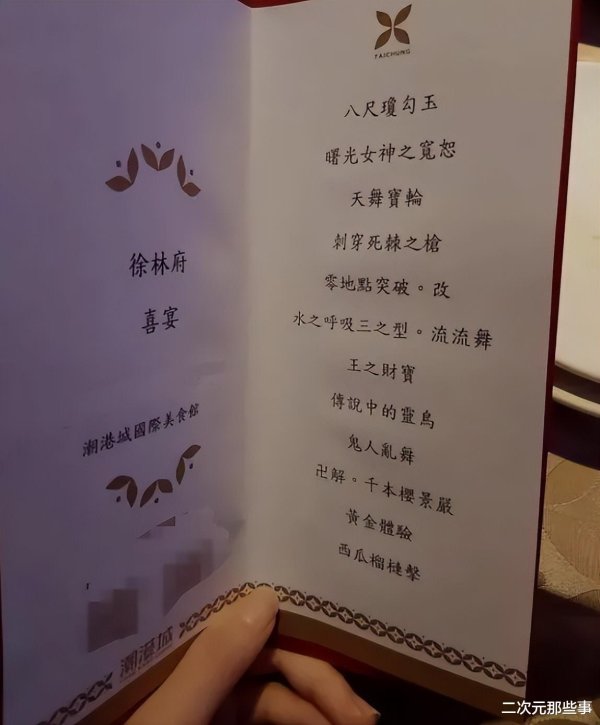 徐林府
喜宴
潮港城國際美食館
潮港城
TAICHUNG
八尺瓊勾玉
曙光女神之寬恕
天舞寶輪
刺穿死棘之槍
零地點突破。改
水之呼吸三之型。流流舞
王之財寶
傳說中的靈鳥
鬼人亂舞
卍解。千本櫻景嚴
黃金體驗
西瓜榴槤擊
二次元那些事